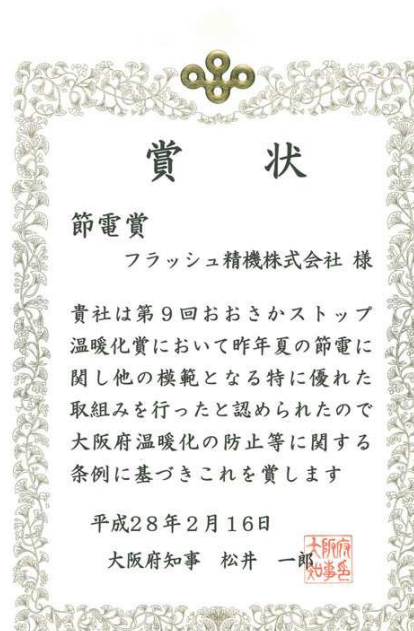 賞 状
節電賞
フラッシュ精機株式会社 様
貴社は第9回おおさかストップ
温暖化賞において昨年夏の節電に
関し他の模範となる特に優れた
取組みを行ったと認められたので
大阪府温暖化の防止等に関する
条例に基づきこれを賞します
平成28年2月16日
大阪府知事 松井 一郎
大阪府
知事印